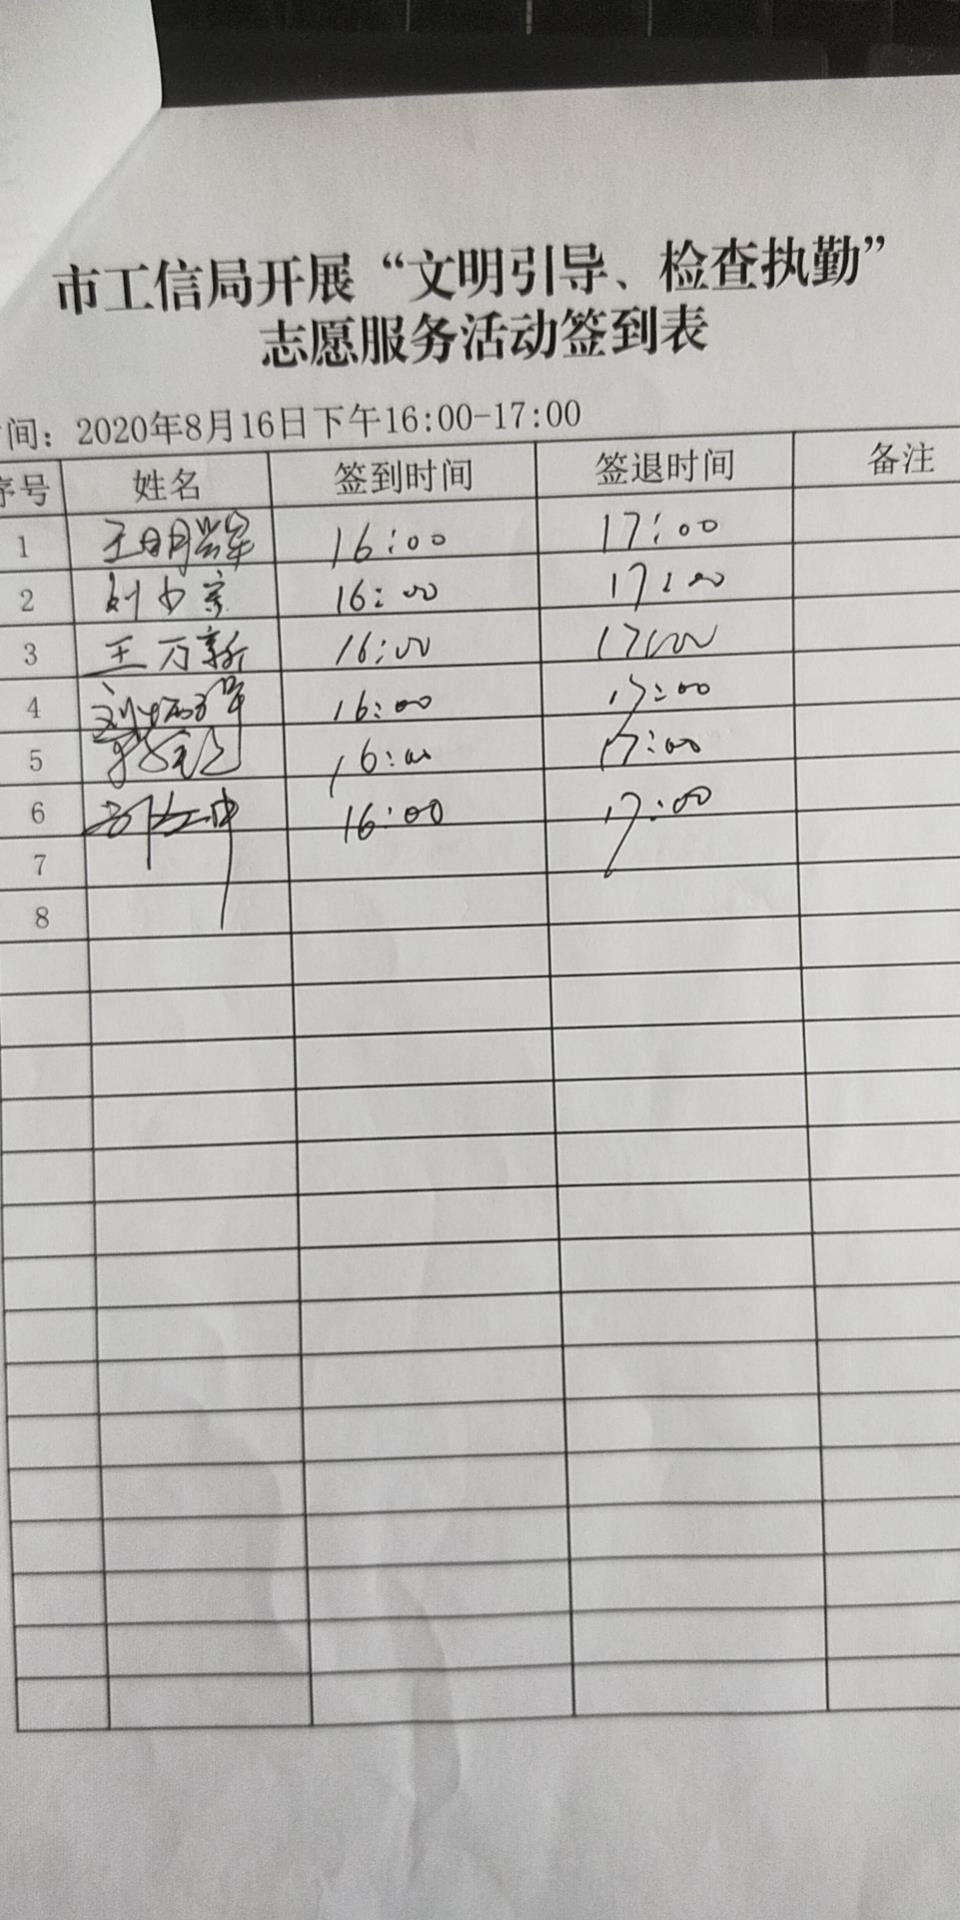 市工信局开展“文明引导、检查执勤”
志愿服务活动签到表
间：2020年8月16日下午16:00-17:00
序号 姓名 签到时间 签退时间 备注
1 王明 16:00 17:00
2 刘少宗 16:00 17:00
3 王万新 16:00 17:00
4 16:00 17:00
5 16:00 17:00
6 16:00 17:00
7
8